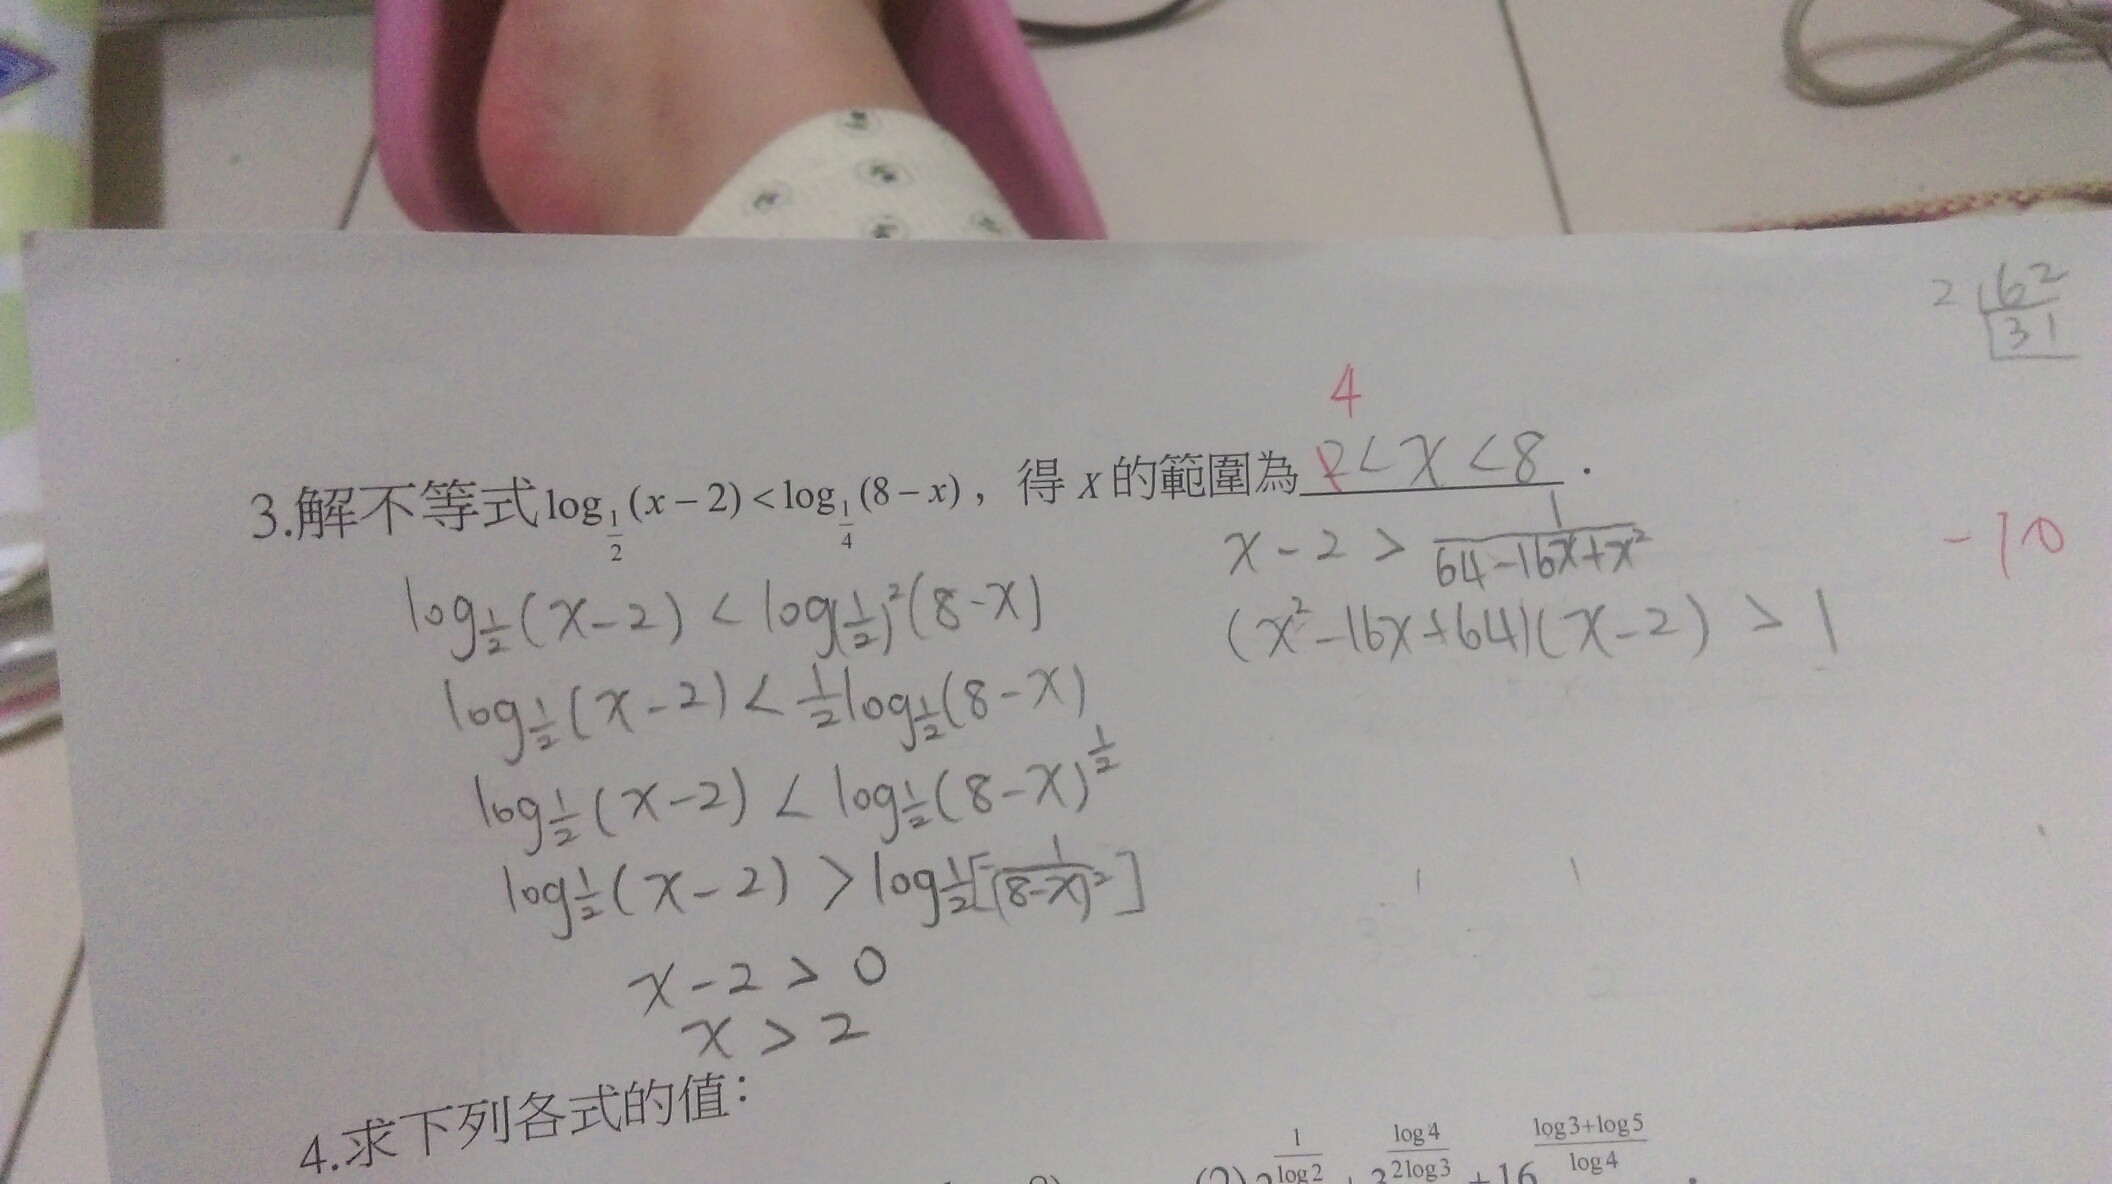 2 | 62
31
4
3.解不等式log_{1/2}(x−2)<log_{1/4}(8−x)，得 x 的範圍為 2<x<8 .
-10
log_{1/2}(x-2) < log_{(1/2)^2}(8-x)
log_{1/2}(x-2) < 1/2 log_{1/2}(8-x)
log_{1/2}(x-2) < log_{1/2}(8-x)^{1/2}
log_{1/2}(x-2) > log_{1/2}[1/(8-x)^2]
x-2 > 0
x > 2
x-2 > 1/(64-16x+x^2)
(x^2-16x+64)(x-2) > 1
4.求下列各式的值：
(2) 1/log2 + 3^{log4/2log3} +16^{(log3+log5)/log4} .